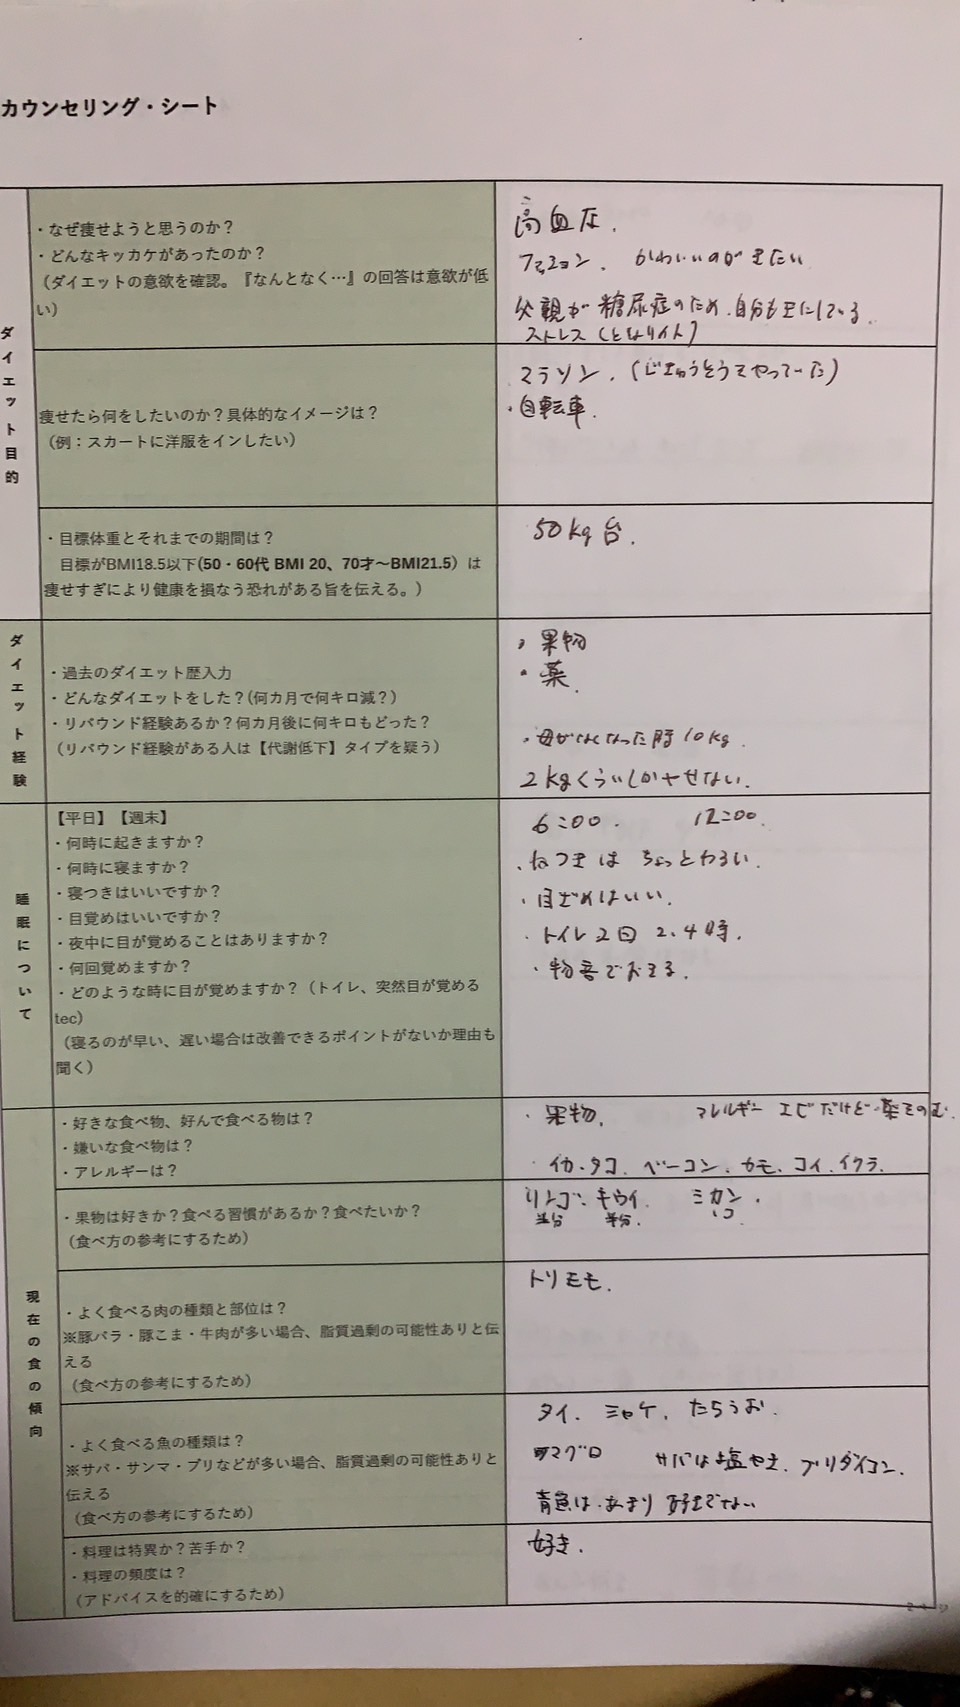 カウンセリング・シート
ダイエット目的
・なぜ痩せようと思うのか？
・どんなキッカケがあったのか？
（ダイエットの意欲を確認。『なんとなく…』の回答は意欲が低
い）
高血圧.
ファッション. かわいいのがきたい
父親が糖尿症のため.自分も気にしている.
ストレス
痩せたら何をしたいのか？具体的なイメージは？
（例：スカートに洋服をインしたい）
マラソン. (じゅうそうでやっていた)
・自転車.
・目標体重とそれまでの期間は？
目標がBMI18.5以下(50・60代 BMI 20、70才～BMI21.5）は
痩せすぎにより健康を損なう恐れがある旨を伝える。）
50kg台.
ダイエット経験
・過去のダイエット歴入力
・どんなダイエットをした？(何カ月で何キロ減？)
・リバウンド経験あるか？何カ月後に何キロもどった？
（リバウンド経験がある人は【代謝低下】タイプを疑う）
・果物
・薬.
・母がなくなった時10kg.
2kgくらいしかやせない.
睡眠について
【平日】【週末】
・何時に起きますか？
・何時に寝ますか？
・寝つきはいいですか？
・目覚めはいいですか？
・夜中に目が覚めることはありますか？
・何回覚めますか？
・どのような時に目が覚めますか？（トイレ、突然目が覚める
tec）
（寝るのが早い、遅い場合は改善できるポイントがないか理由も
聞く）
6:00. 12:00.
・ねつきは ちょっとわるい.
・目ざめはいい.
・トイレ2回 2.4時.
・物音でおきる.
現在の食の傾向
・好きな食べ物、好んで食べる物は？
・嫌いな食べ物は？
・アレルギーは？
・果物. アレルギー エビだけど.薬をのむ.
・イカ.タコ. ベーコン. カモ. コイ.イクラ.
・果物は好きか？食べる習慣があるか？食べたいか？
（食べ方の参考にするため）
リンゴ. キウイ. ミカン.
半分 半分. 1コ.
・よく食べる肉の種類と部位は？
※豚バラ・豚こま・牛肉が多い場合、脂質過剰の可能性ありと伝
える
（食べ方の参考にするため）
トリモモ.
・よく食べる魚の種類は？
※サバ・サンマ・ブリなどが多い場合、脂質過剰の可能性ありと
伝える
（食べ方の参考にするため）
タイ. シャケ. たらうお.
マグロ サバは塩やき. ブリダイコン.
青魚は.あまり好きでない
・料理は特異か？苦手か？
・料理の頻度は？
（アドバイスを的確にするため）
好き.